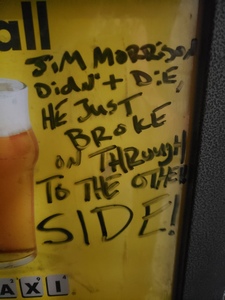 all
JIM MORRISON
DIDN'T DIE,
HE JUST
BROKE
ON THROUGH
TO THE OTHER
SIDE!
AXI